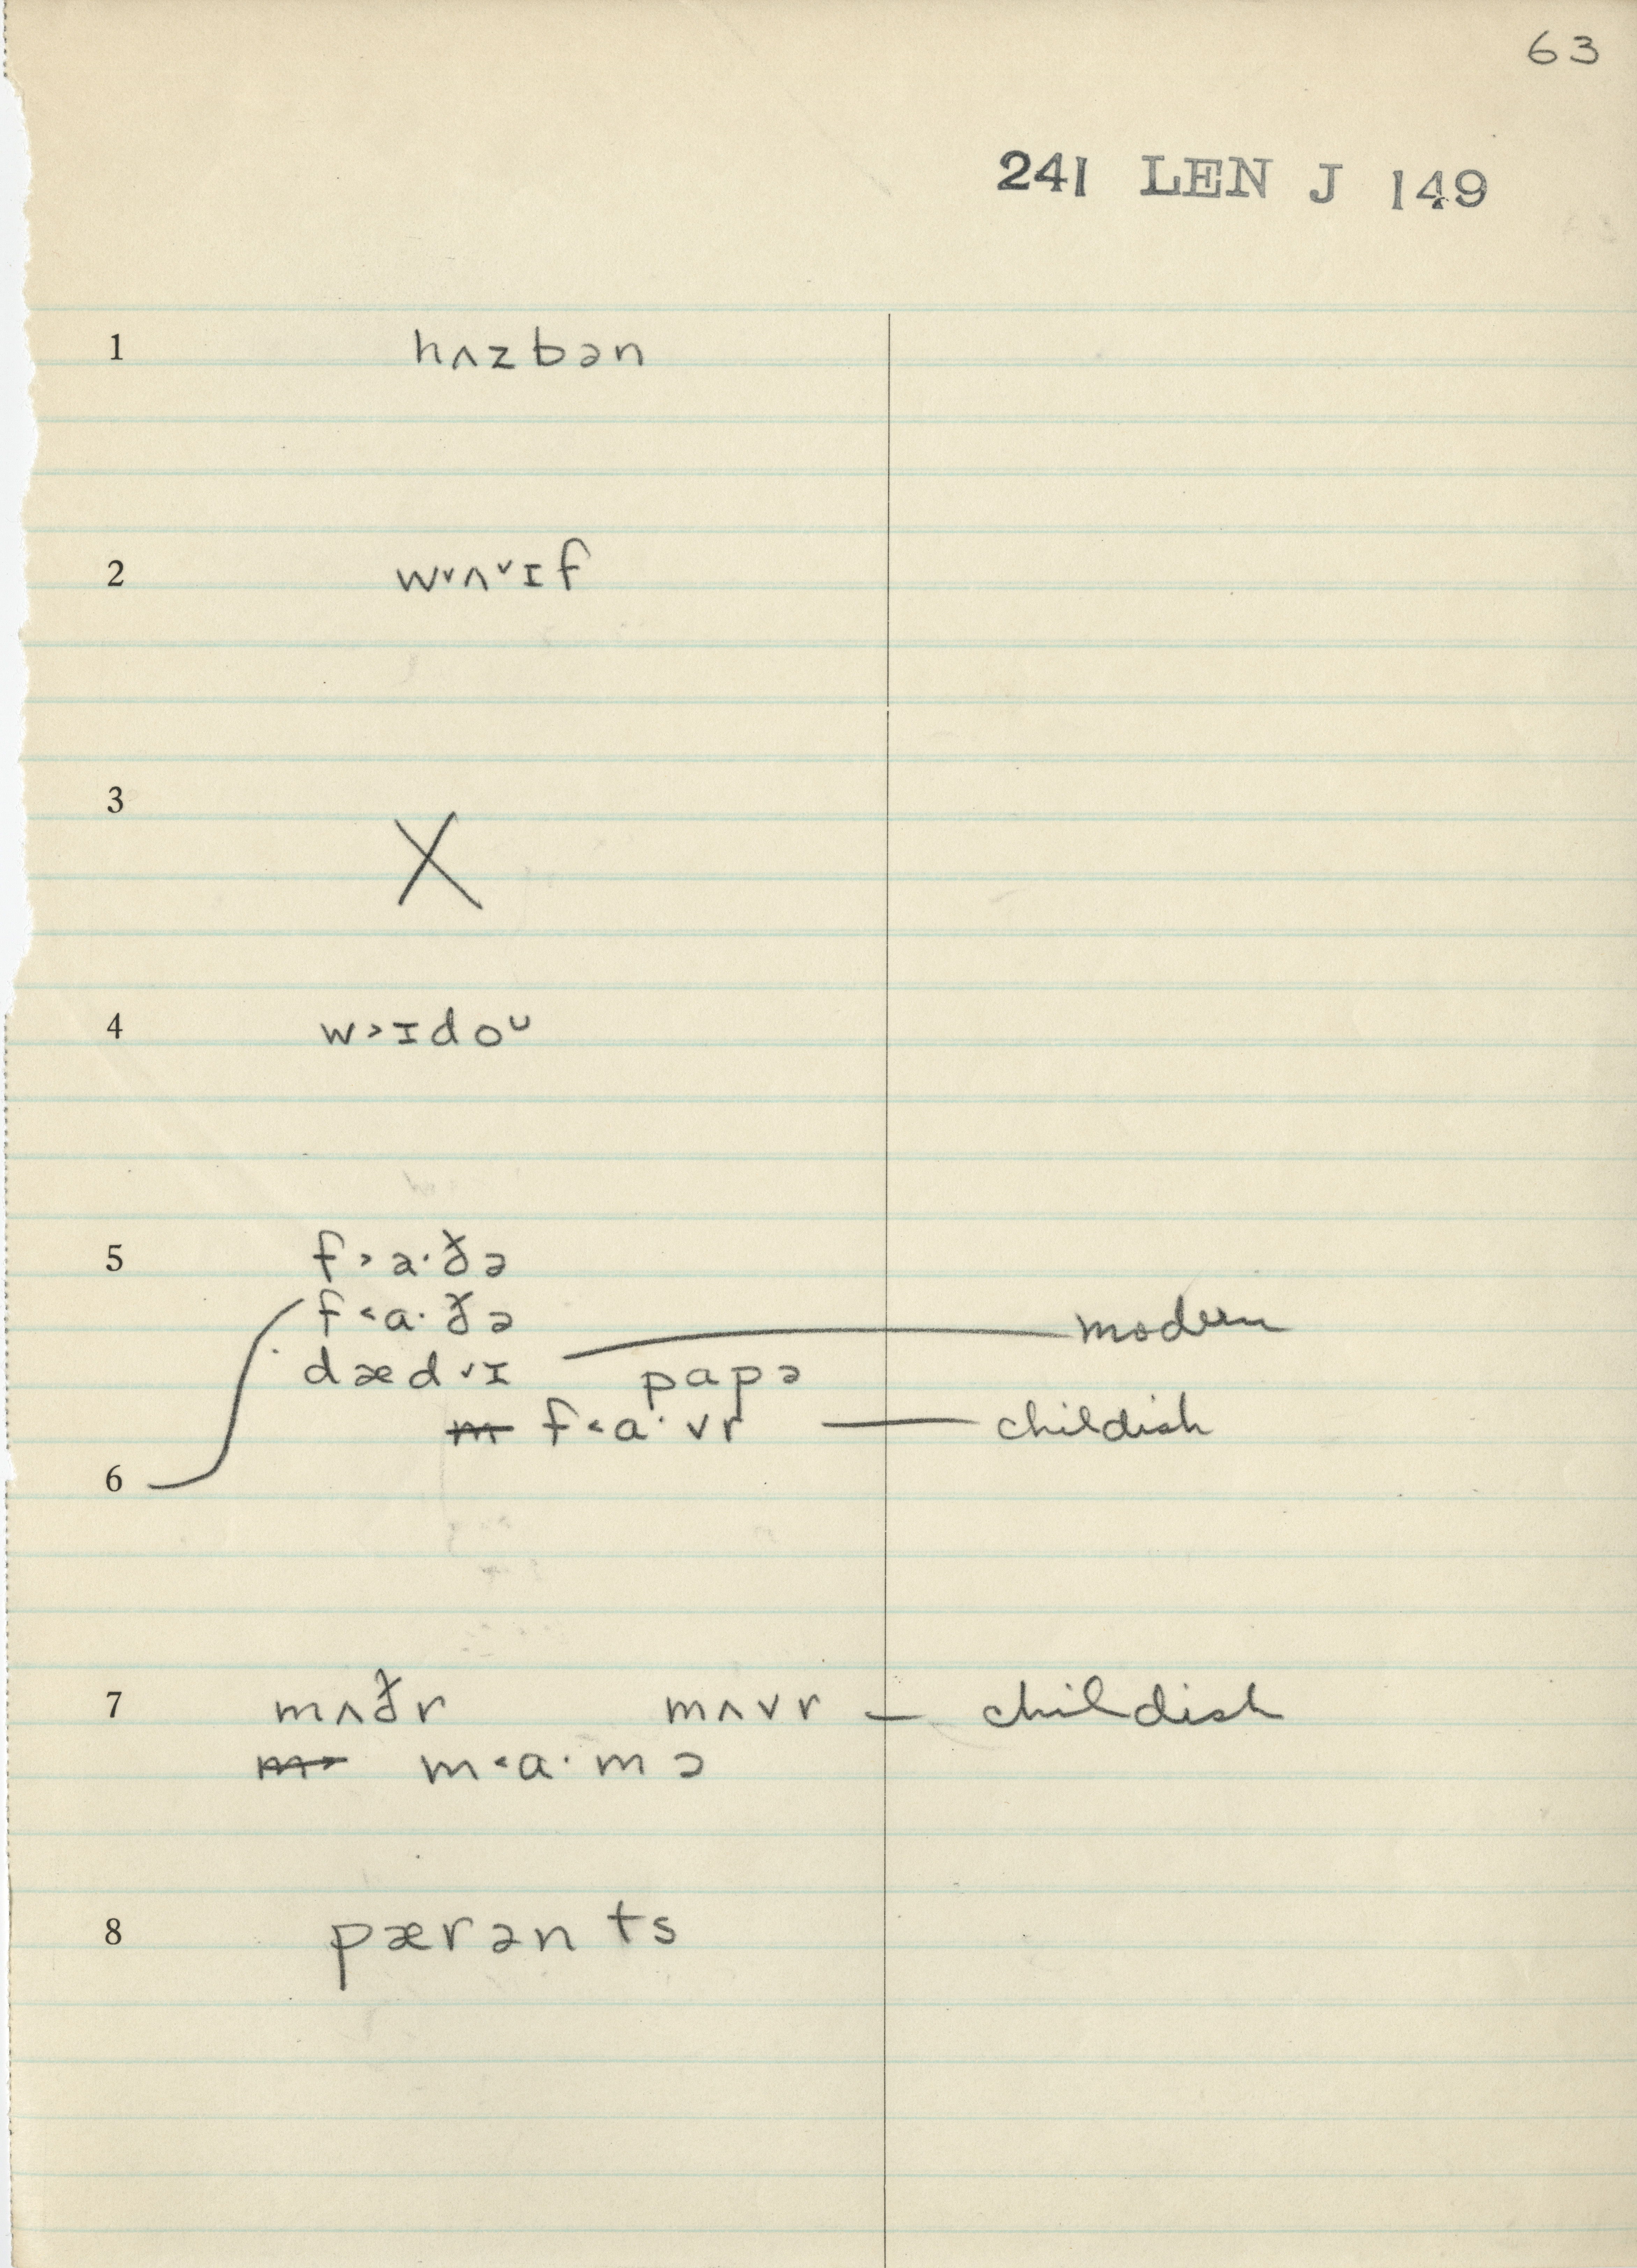 63
241 LEN J 149
1 hʌzbən
2 w˅ʌ˅ɪf
3 X
4 w>ɪdoᴜ
5 f>a·ðə
f<a·ðə
modern
dæd˅ɪ papə
f<a·vr — childish
6
7 mʌðr mʌvr — childish
m<a·mə
8 pærənts